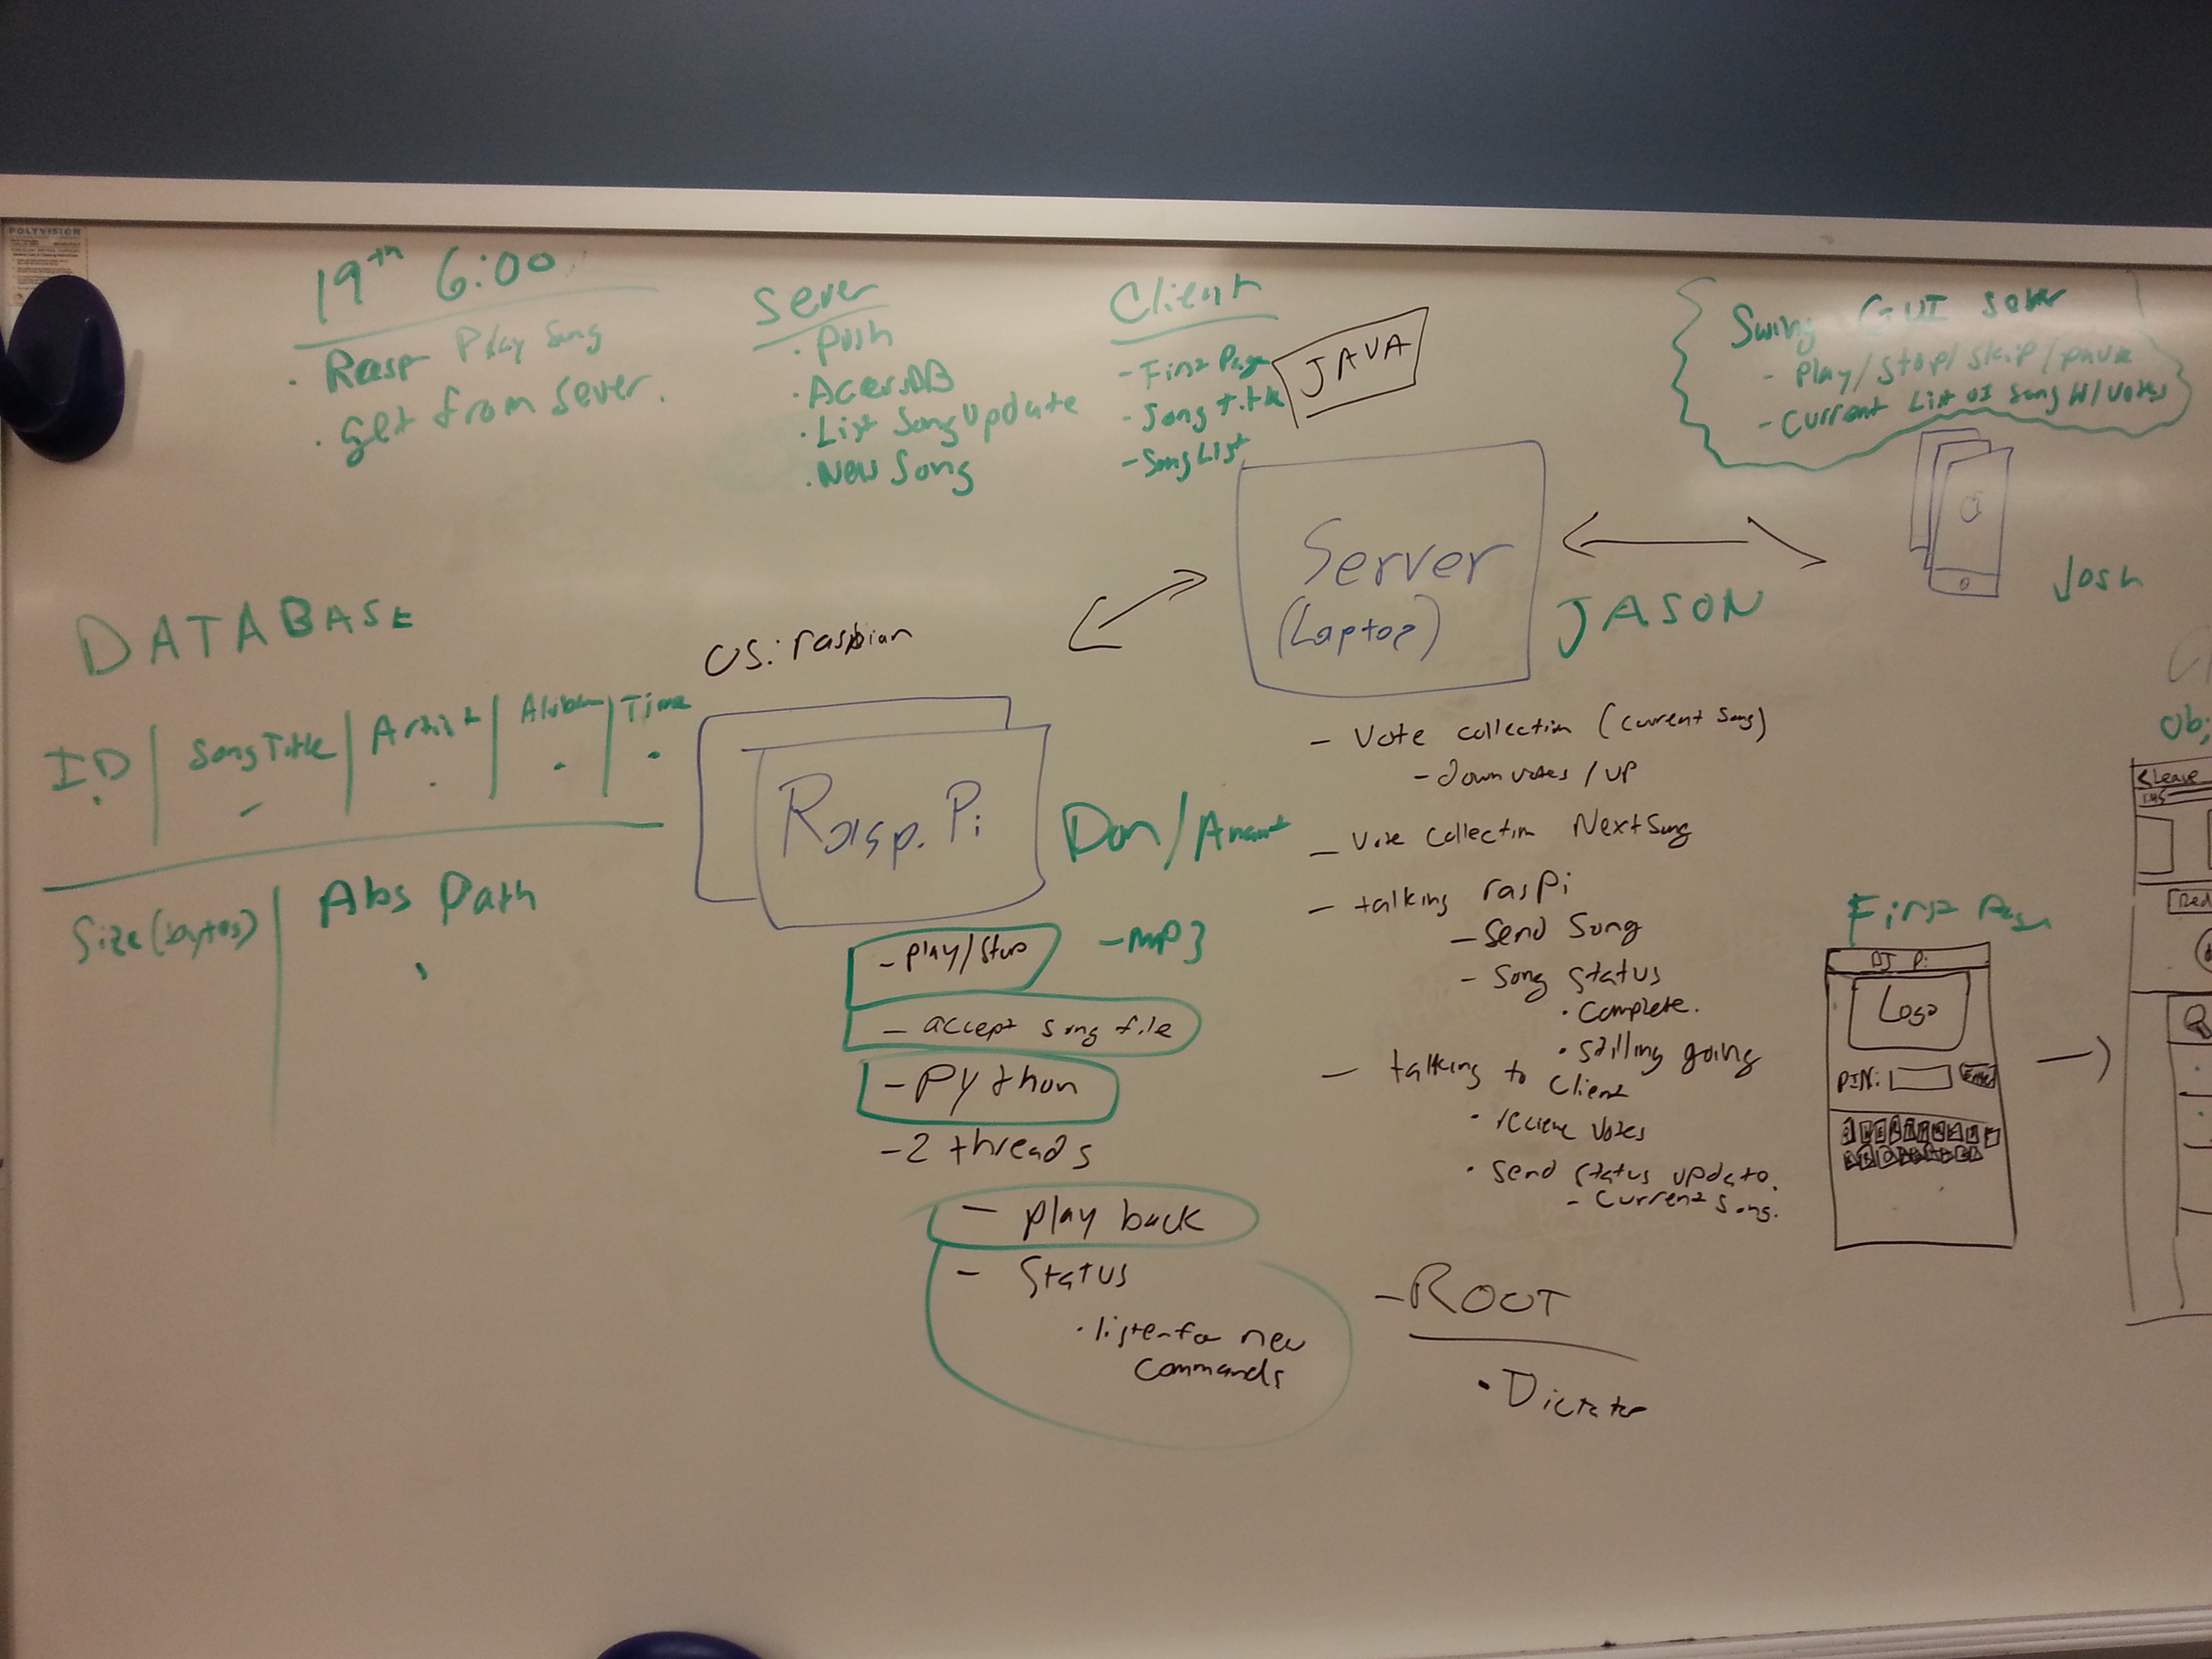 POLYVISION
19th 6:00
· Rasp Play Song
· get from Sever.
Sever
· Push
· AccessDB
· List Song Update
· New Song
Client
- First Page
- Song Title
- Song List
JAVA
Swing GUI Sever
- Play/Stop/Skip/pause
- Current List of Song W/Votes
Server
(Laptop)
JASON
Josh
DATABASE
ID | Song Title | Artist | Album | Time
Size (bytes) | Abs Path
OS: raspbian
Rasp. Pi
Don/Anant
- play/Stop
- MP3
- accept song file
- Python
- 2 threads
- play back
- Status
· listen for new
commands
- Vote collection (current song)
- down votes / up
- Vote collection Next Song
- talking rasPi
- Send Song
- Song Status
· Complete.
· Stilling going
- talking to Client
· recieve Votes
· Send status update.
- Current Song.
- ROOT
· Dictator
First Page
DJ Pi
Logo
PIN:
Enter
Obj
< Leave